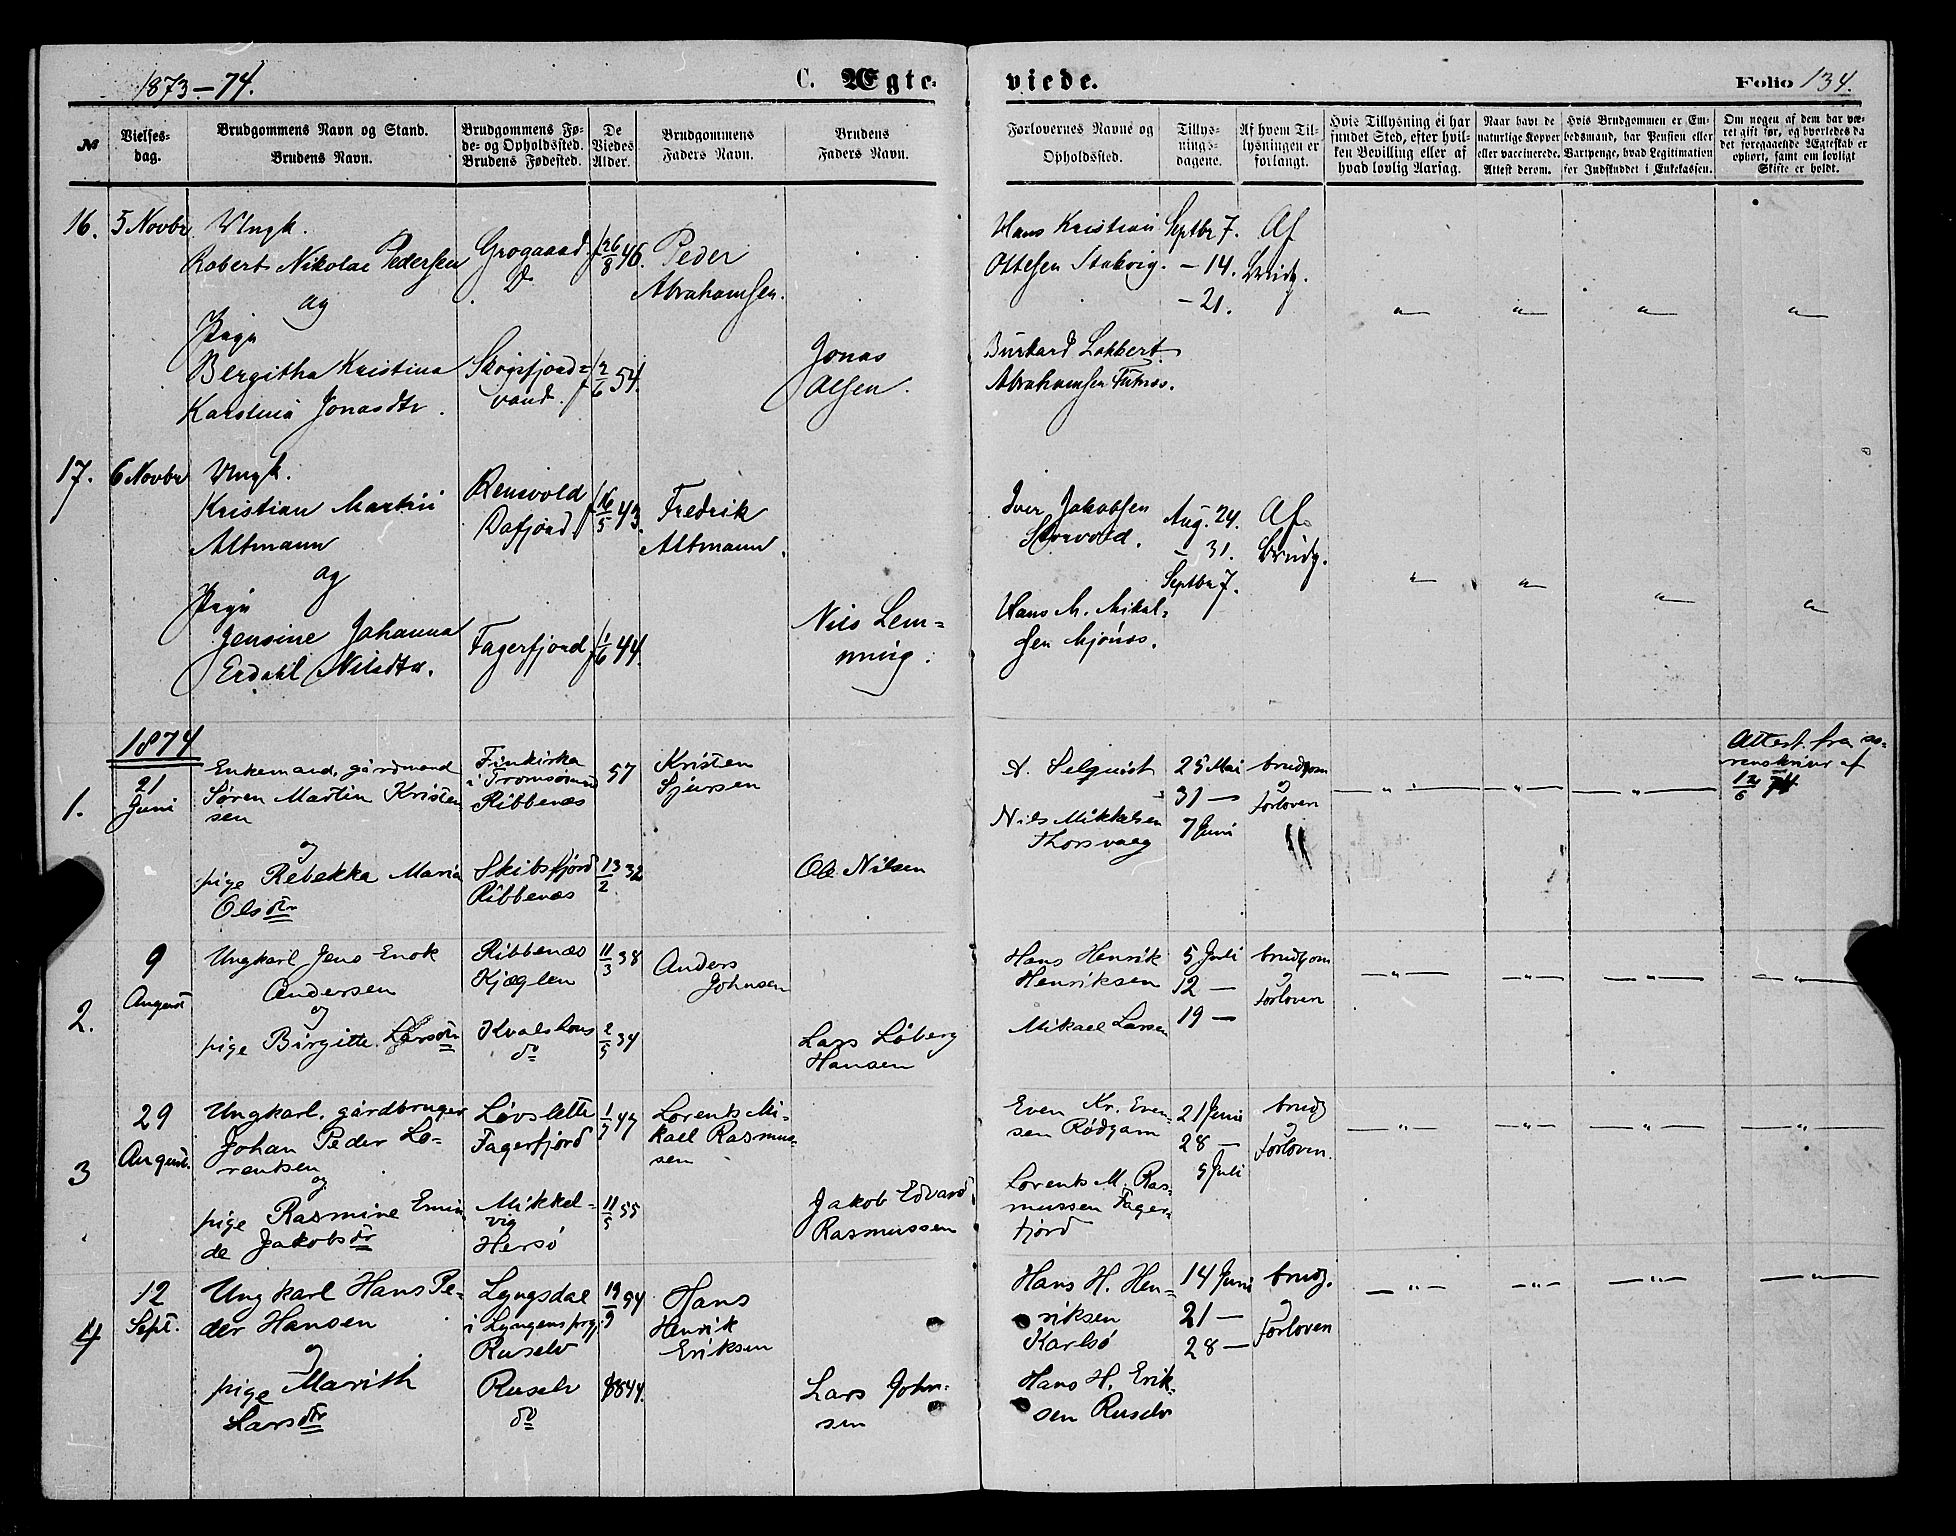 1873-74.
C. Ægteviede.
Folio 134.
№
Vielses-dag.
Brudgommens Navn og Stand.
Brudens Navn.
Brudgommens Fø-
de- og Opholdssted.
Brudens Fødested.
De
Viedes
Alder.
Brudgommens
Faders Navn.
Brudens
Faders Navn.
Forlovernes Navne og
Opholdssted.
Tillys-
nings-
dagene.
Af hvem Til-
lysningen er
forlangt.
Hvis Tillysning ei har
fundet Sted, efter hvil-
ken Bevilling eller af
hvad lovlig Aarsag.
Naar havt de
naturlige Kopper
eller vaccinerede.
Attest derom.
Hvis Brudgommen er Em-
bedsmand, har Pension eller
Vartpenge, hvad Legitimation
for Indskuddet i Enkekassen.
Om nogen af dem har væ-
ret gift før, og hvorledes da
det foregaaende Ægteskab er
ophørt, samt om lovligt
Skifte er holdt.
16. 5 Novbr
Ungk.
Robert Nikolai Pedersen
og
Pige
Bergitha Kristina
Karstina Jonasdtr.
Grogaard
D
Skogsfjord=
vand.
f 26/8 46.
f 2/6 54.
Peder
Abrahamsen.
Jonas
Olsen.
Hans Kristian
Ottesen Stakvig.
Burkard Lokkert
Abrahamsen Futnæs.
Septbr 7.
- 14.
- 21.
Af
Brudg.
17. 6 Novbr
Ungk.
Kristian Martin
Altmann
og
Pige
Jensine Johanna
Erdahl Nilsdtr.
Rensvold
Dafjord
Fagerfjord
f 16/5 43.
f 1/6 44.
Fredrik
Altmann.
Nils Lem=
ming.
Iver Jakobsen
Storvold.
Hans M. Mikal=
sen Mjønes.
Aug. 24.
- 31.
Septbr 7.
Af
Brudg.
1874
1.
21
Juni
Enkemand, gårdmand
Søren Martin Kristen
sen
og
pige Rebekka Maria
Olsdtr
Finkirka
i Tromsøsund
Ribbenæs
Skibsfjord
Ribbenæs
57
13/2 32
Kristen
Sjursen
Ole Nilsen
A. Selquist
Nils Mikkelsen
Thorsvaag
25 Mai
31 —
7 Juni
brudgom
o
Forloven
Attest fra so-
renskriver af
12/6 74
2.
9
August
Ungkarl Jens Enok
Andersen
og
pige Birgitte Larsdtr
Ribbenæs
Kjæglen
Kvalshaus
do
11/3 38
2/5 34
Anders
Johnsen
Lars Løberg
Hansen
Hans Henrik
Henriksen
Mikael Larsen
5 Juli
12 —
19 —
brudgom
o
Forloven
3
29
August.
Ungkarl, gårdbruger
Johan Peder Lo-
rentsen
og
pige Rasmine Emin
de Jakobsdtr
Løvslette
Fagerfjord
Mikkel-
vig
Hersø
1/7 47
11/5 55
Lorents Mi-
kael Rasmus-
sen
Jakob Edvard
Rasmussen
Even Kr. Even-
sen Rødgam
Lorents M. Ras-
mussen Fager-
fjord
21 Juni
28 —
5 Juli
brudg
o
Forloven.
4
12
Sept.
Ungkarl Hans Pe-
der Hansen
og
pige Marith
Larsdtr
Lyngsdal
i Lyngens prgj
Ruselv
Ruselv
do
19/9 54
44.
Hans
Henrik
Eriksen
Lars John-
sen
Hans H. Hen-
riksen
Karlsø
Hans H. Erik-
sen Ruselv
14 Juni
21 —
28 —
brudg.
o
Forloven